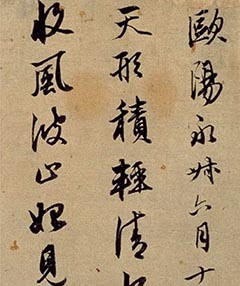 歐陽永叔六月十
天形積輕清水
收風波止始見